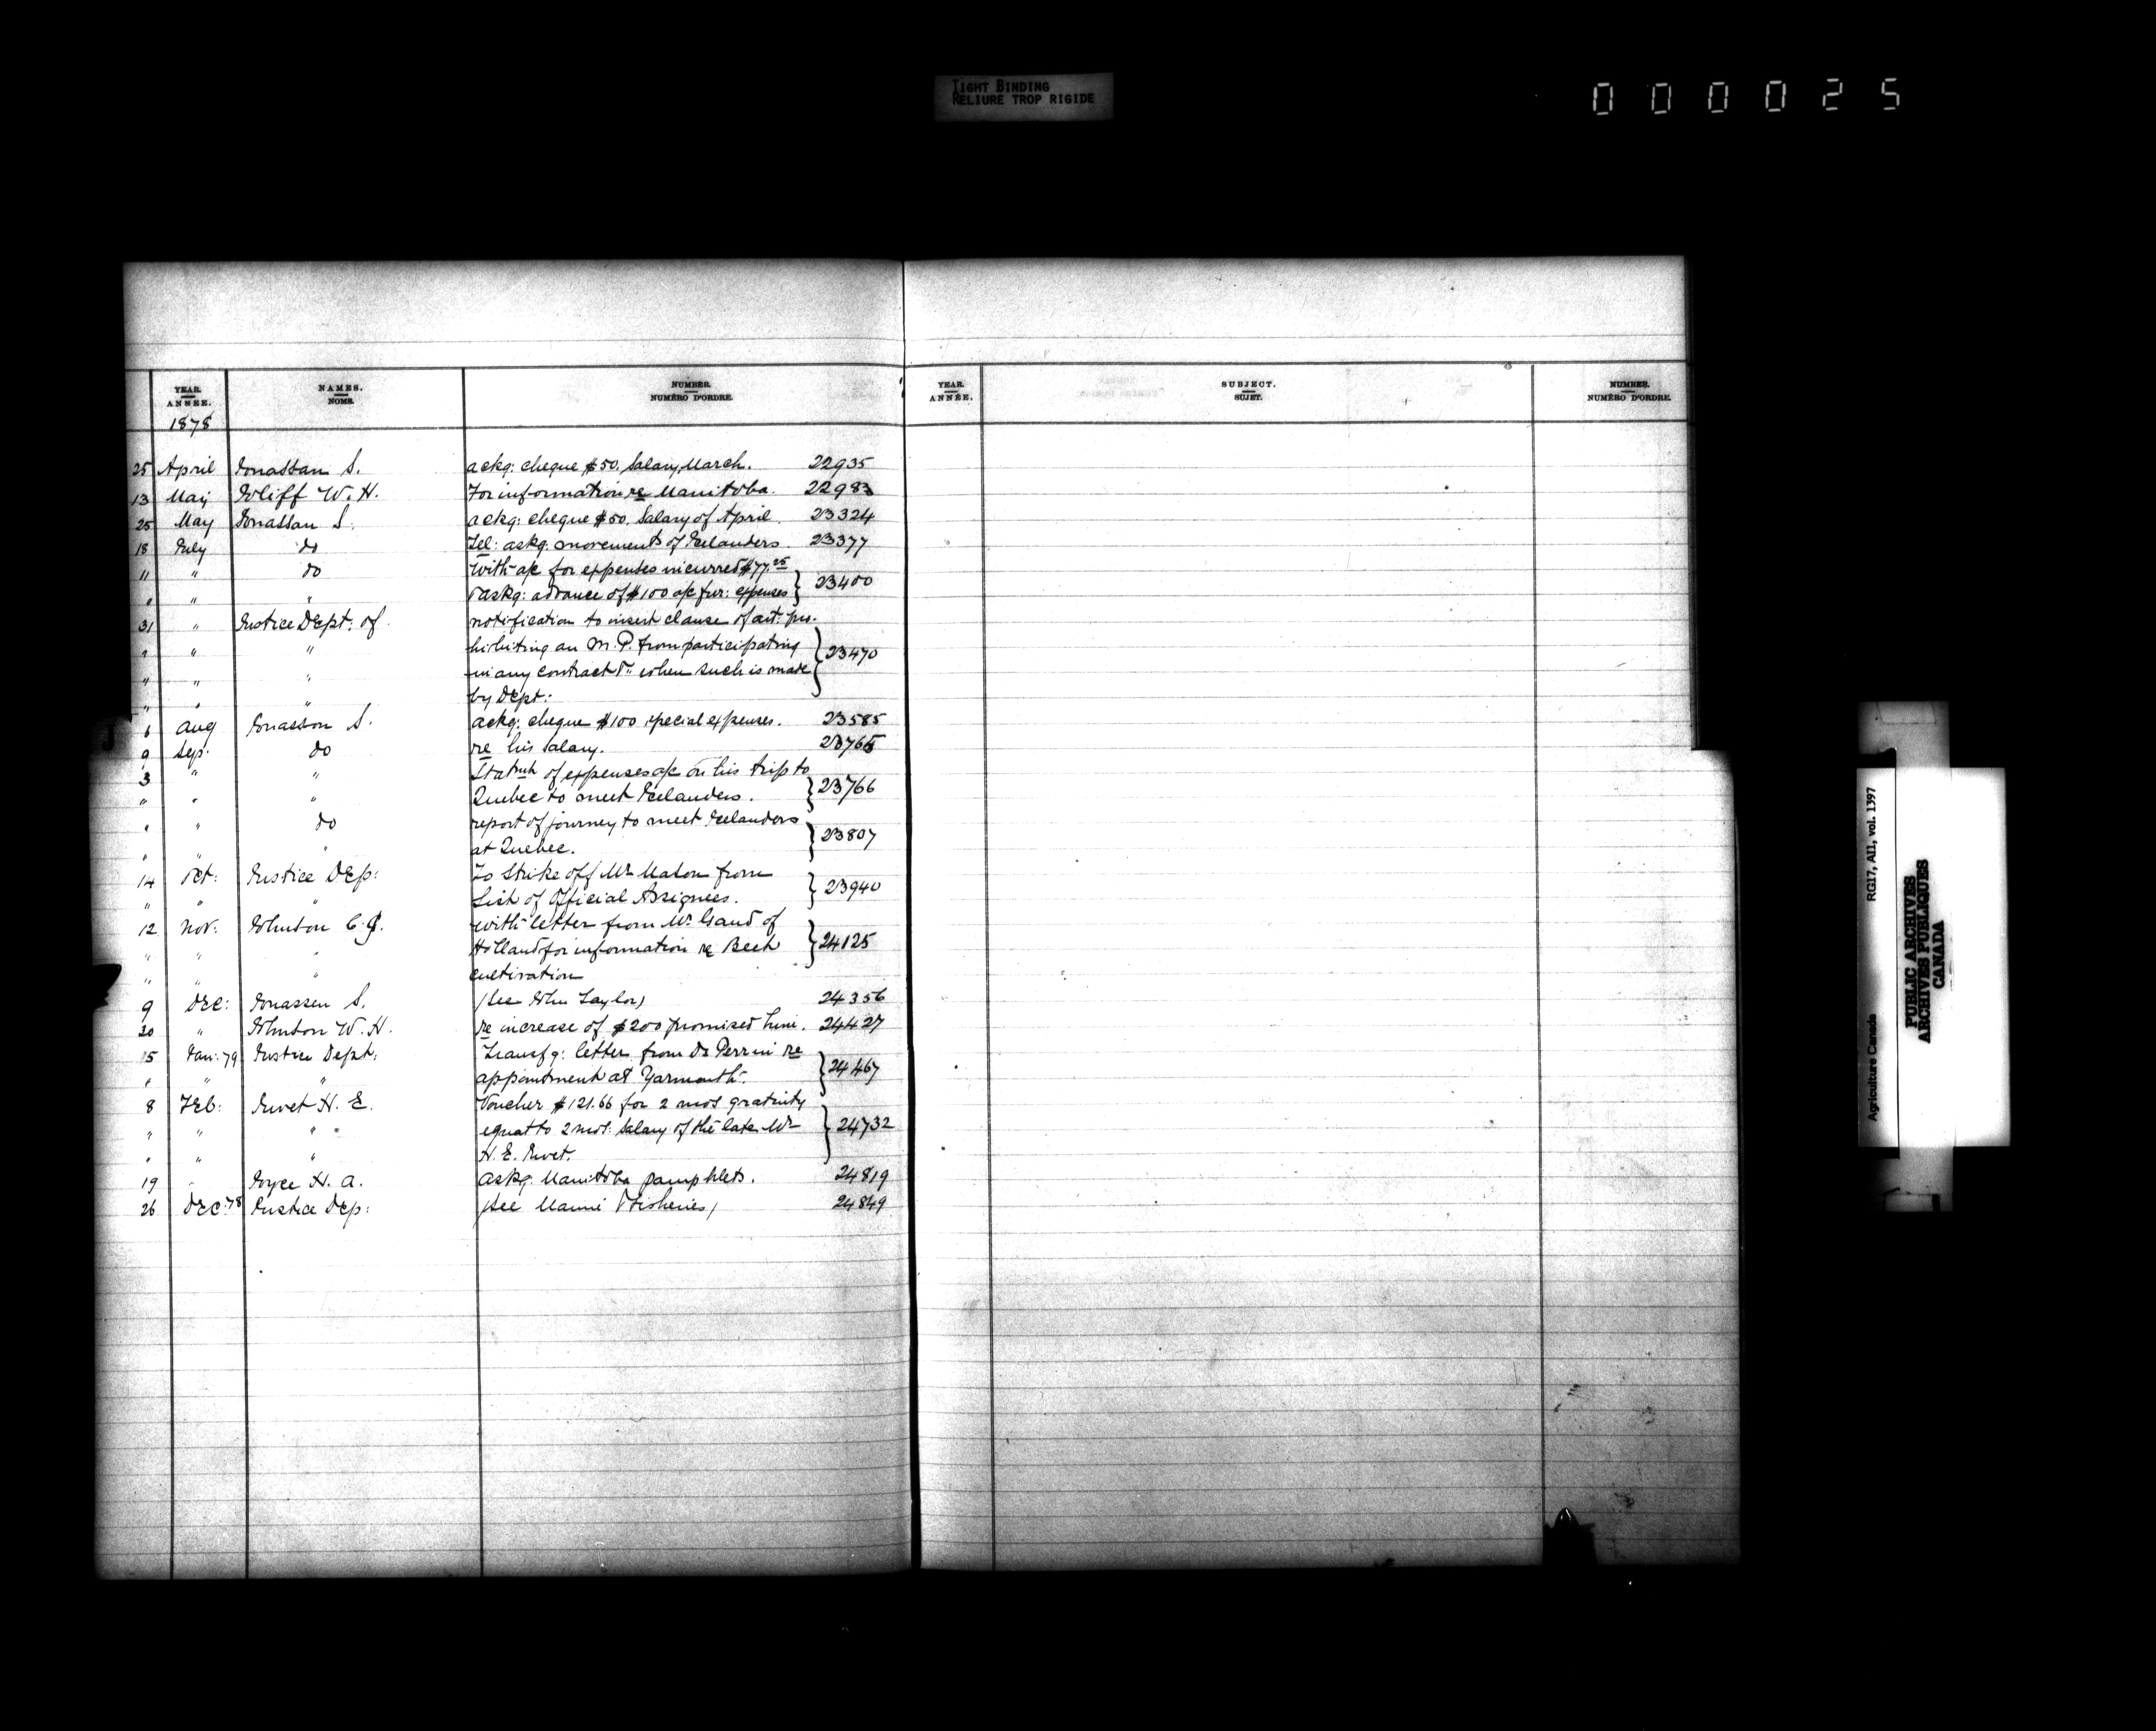 TIGHT BINDING
RELIURE TROP RIGIDE
000025
YEAR. ANNÉE. NAMES. NOMS. NUMBER. NUMÉRO D'ORDRE. YEAR. ANNÉE. SUBJECT. SUJET. NUMBER. NUMÉRO D'ORDRE.
1878
25 April Jonassan S. ackg: cheque $50. Salary, March. 22935
13 May Joliff W. H. For information re Manitoba. 22983
25 May Jonassan S. ackg: cheque $50. Salary of April. 23324
18 July do Tel: askg: movements of Icelanders. 23377
11 " do With a/c for expenses incurred $77.25
" " " & askg: advance of $100 a/c fur: expenses } 23400
31 " Justice Dept. of notification to insert clause of act: pro-
" " " hibiting an M. P. from participating } 23470
" " " in any contract &c. when such is made
" " " by Dept:
6 Aug Jonasson S. ackg: cheque $100 special expenses. 23585
9 Sep. do re his salary. 23765
3 " " Statmt of expenses a/c on his trip to
" " " Quebec to meet Icelanders. } 23766
" " do report of journey to meet Icelanders
" " " at Quebec. } 23807
14 Oct: Justice Dep: To Strike off Mr Maton from
" " " List of Official Assignees. } 23940
12 Nov. Johnson C. J. with letter from Mr. Gand of
" " " Holland for information re Beet } 24125
" " " cultivation
9 Dec: Jonassen S. (See John Taylor) 24356
20 " Johnson W. H. re increase of $200 promised him. 24427
15 Jan: 79 Justice Dept: Transfg: letter from Dr Perrin re
" " " appointment at Yarmouth. } 24467
8 Feb: Juvet H. E. Voucher $121.66 for 2 mos gratuity
" " " " equal to 2 mos: Salary of the late Mr } 24732
" " " H. E. Juvet.
19 " Joyce H. A. askg: Manitoba pamphlets. 24819
26 Dec: 78 Justice Dep: (See Marine & Fisheries) 24849
J
Agriculture Canada RG17, AII, vol. 1397
PUBLIC ARCHIVES
ARCHIVES PUBLIQUES
CANADA